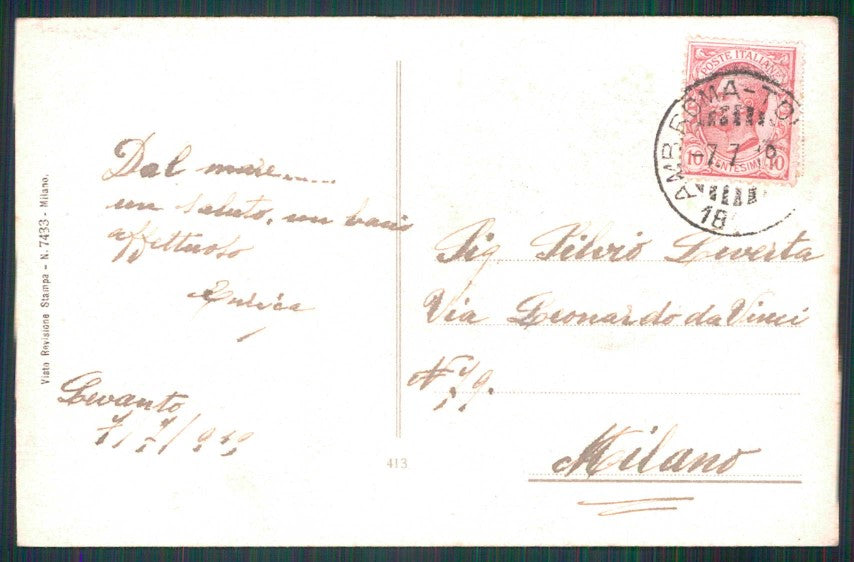 Dal mare......
un saluto, un bacio
affettuoso
Enrica
Levanto
7/7/919
Visto Revisione Stampa - N. 7433 - Milano.
413
POSTE ITALIANE
10 CENTESIMI 10
AMB. ROMA-TO
7.7
18
Sig Silvio Leverta
Via Leonardo da Vinci
N
Milano